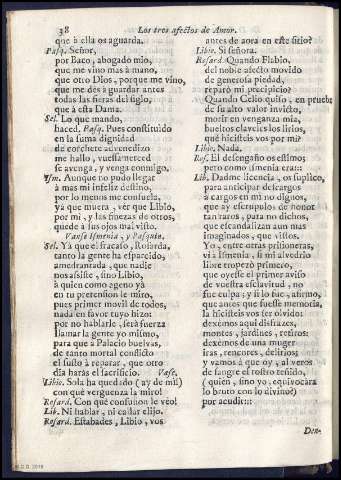 38 Los tres afectos de Amor.
que à ella os aguarda.
Pasq. Señor,
por Baco, abogado mio,
que me vino mas à mano,
que otro Dios, porque me vino,
que me dès à guardar antes
todas las fieras del siglo,
que à esta Dama.
Sel. Lo que mando,
haced. Pasq. Pues constituido
en la suma dignidad
de corchete advenedizo
me hallo, vuessa merced
se avenga, y venga conmigo.
Ism. Aunque no pudo llegar
à mas mi infeliz destino,
por lo menos me consuela,
yà que muera, ver que Libio,
por mi, y las finezas de otros,
quede à sus ojos mal visto.
Vanse Ismenia, y Pasquin.
Sel. Yà que el fracaso, Rosarda,
tanto la gente ha esparcido,
amedrantada, que nadie
nos assiste, sino Libio,
à quien como ageno yà
en tu pretension le miro,
pues primer movil de todos,
nada en favor tuyo hizo:
por no hablarle, serà fuerza
llamar la gente yo mismo,
para que à Palacio buelvas,
de tanto mortal conflicto
el susto à reparar, que otro
dia haràs el sacrificio. Vase.
Libio. Sola ha quedado (ay de mi!)
con què verguenza la miro!
Rosard. Con què confusion le veo!
Lib. Ni hablar, ni callar elijo.
Rosard. Estabades, Libio, vos
antes de aora en este sitio?
Libio. Si señora.
Rosard. Quando Flabio,
del noble afecto movido
de generosa piedad,
reparò mi precipicio?
Quando Celio quiso, en prueba
de su alto valor invicto,
morir en venganza mia,
bueltos claveles los lirios,
què hicisteis vos por mi?
Libio. Nada.
Ros. El desengaño os estimo;
pero como Ismenia era::
Lib. Dadme licencia, os suplico,
para anticipar descargos
à cargos en mi no dignos,
que ay escrupulos de honor
tan raros, para no dichos,
que escandalizan aun mas
imaginados, que vistos.
Yo, entre otras prisioneras,
vì à Ismenia, si mi alvedrio
libre tropezò primero,
que oyesse el primer aviso
de vuestra esclavitud, no
fue culpa; y si lo fue, afirmo,
que antes que fuesse memoria,
la hicisteis vos ser olvido:
dexemos aqui disfrazes,
montes, jardines, retiros:
dexemos de una muger
iras, rencores, delirios;
y vamos à que oy, al veros
de sangre el rostro teñido,
(quien, sino yo, equivocàra
lo bruto con lo divino?)
por acudir::
Den-